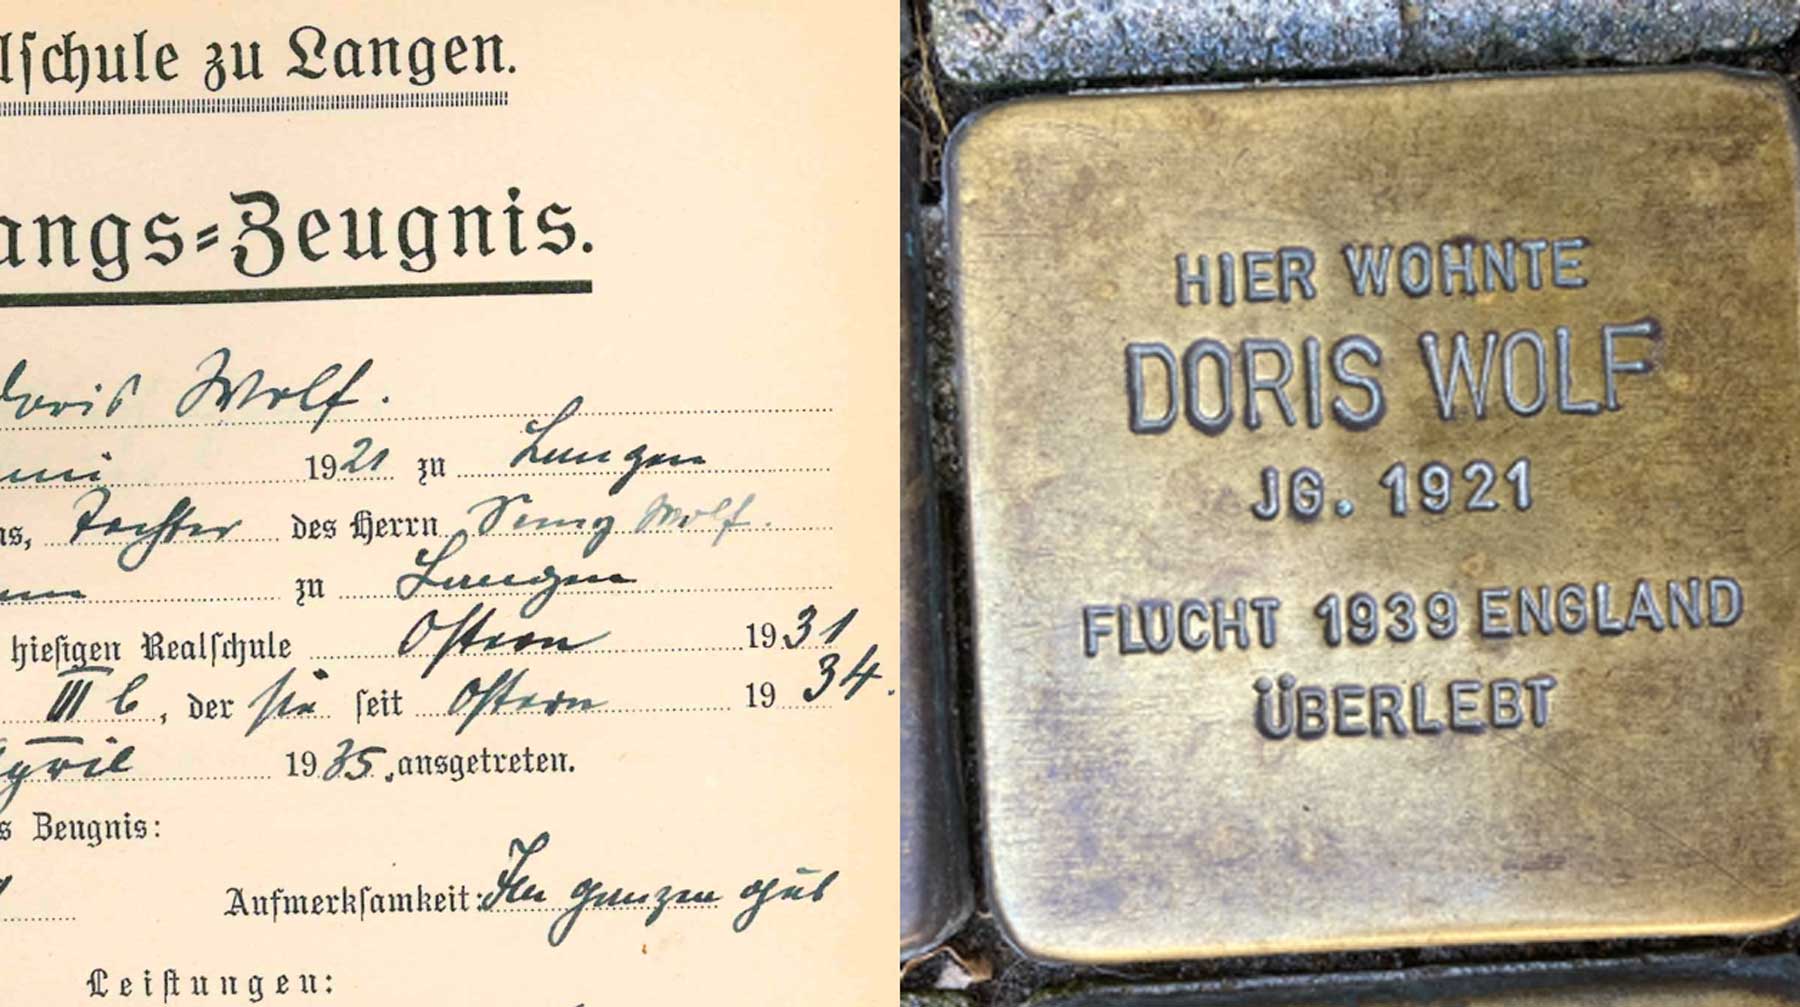 lſchule zu Langen.
angs=Zeugnis.
Doris Wolf.
1921 zu Langen
ns, Tochter des Herrn Semy Wolf.
zu Langen
hieſigen Realſchule Ostern 1931
III b, der sie ſeit Ostern 1934.
April 1935. ausgetreten.
s Zeugnis:
Aufmerkſamkeit: Im ganzen gut
Leiſtungen:
HIER WOHNTE
DORIS WOLF
JG. 1921
FLUCHT 1939 ENGLAND
ÜBERLEBT